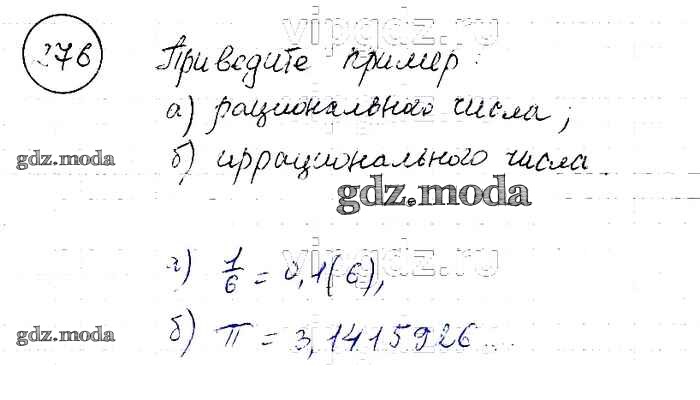 vipgdz.ru
276
Приведите пример:
а) рационального числа;
gdz.moda
б) иррационального числа.
gdz.moda
vipgdz.ru
а) 1/6 = 0,1(6),
gdz.moda
б) π = 3,1415926...